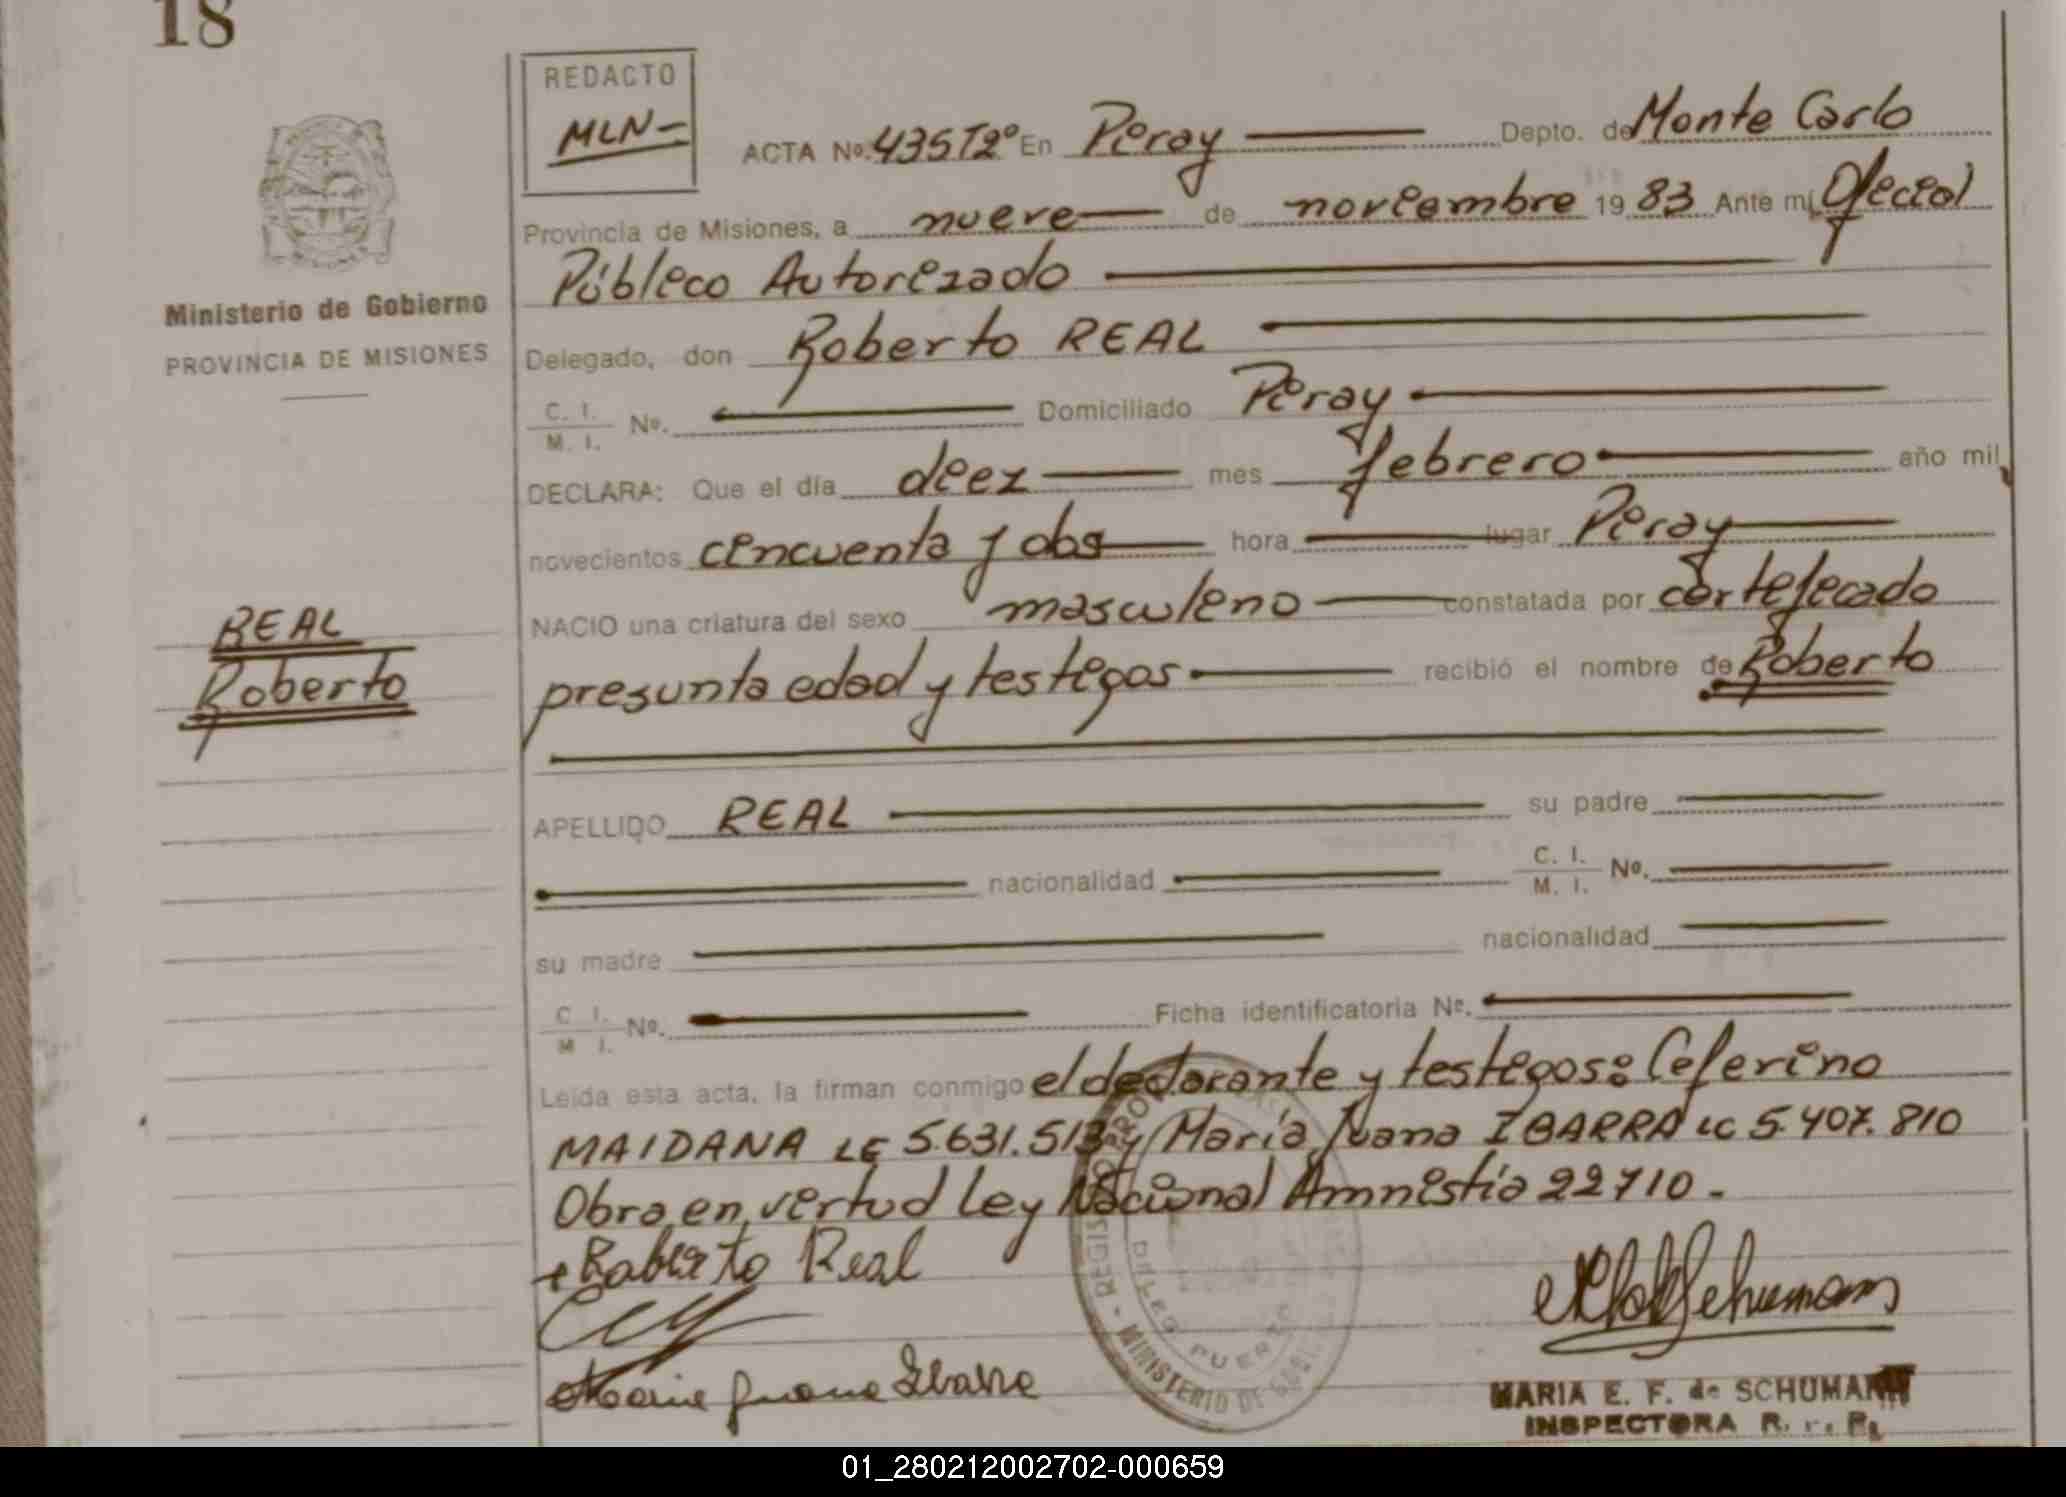 18
REDACTO
MLN-
ACTA Nº. 435T2º En Piray Depto. de Monte Carlo
Provincia de Misiones, a nueve de noviembre 1983 Ante mí, Oficial
Público Autorizado
Ministerio de Gobierno
PROVINCIA DE MISIONES
Delegado, don Roberto REAL
C. I.
M. I. Nº. Domiciliado Piray
DECLARA: Que el día diez mes febrero año mil
novecientos cincuenta y dos hora lugar Piray
NACIO una criatura del sexo masculino constatada por certificado
REAL
Roberto
presunta edad y testigos recibió el nombre de Roberto
APELLIDO REAL su padre
nacionalidad C. I.
M. I. Nº.
su madre nacionalidad
C. I.
M. I. Nº. Ficha identificatoria Nº.
Leída esta acta, la firman conmigo el declarante y testigos: Ceferino
MAIDANA LE 5.631.513 y María Juana IBARRA LC 5.407.810
Obra en virtud Ley Nacional Amnistía 22710.-
Roberto Real
Maria Juana Ibarra
MINISTERIO DE
DELEG PUERTO
MARIA E. F. de SCHUMANN
INSPECTORA R. P.
01_280212002702-000659